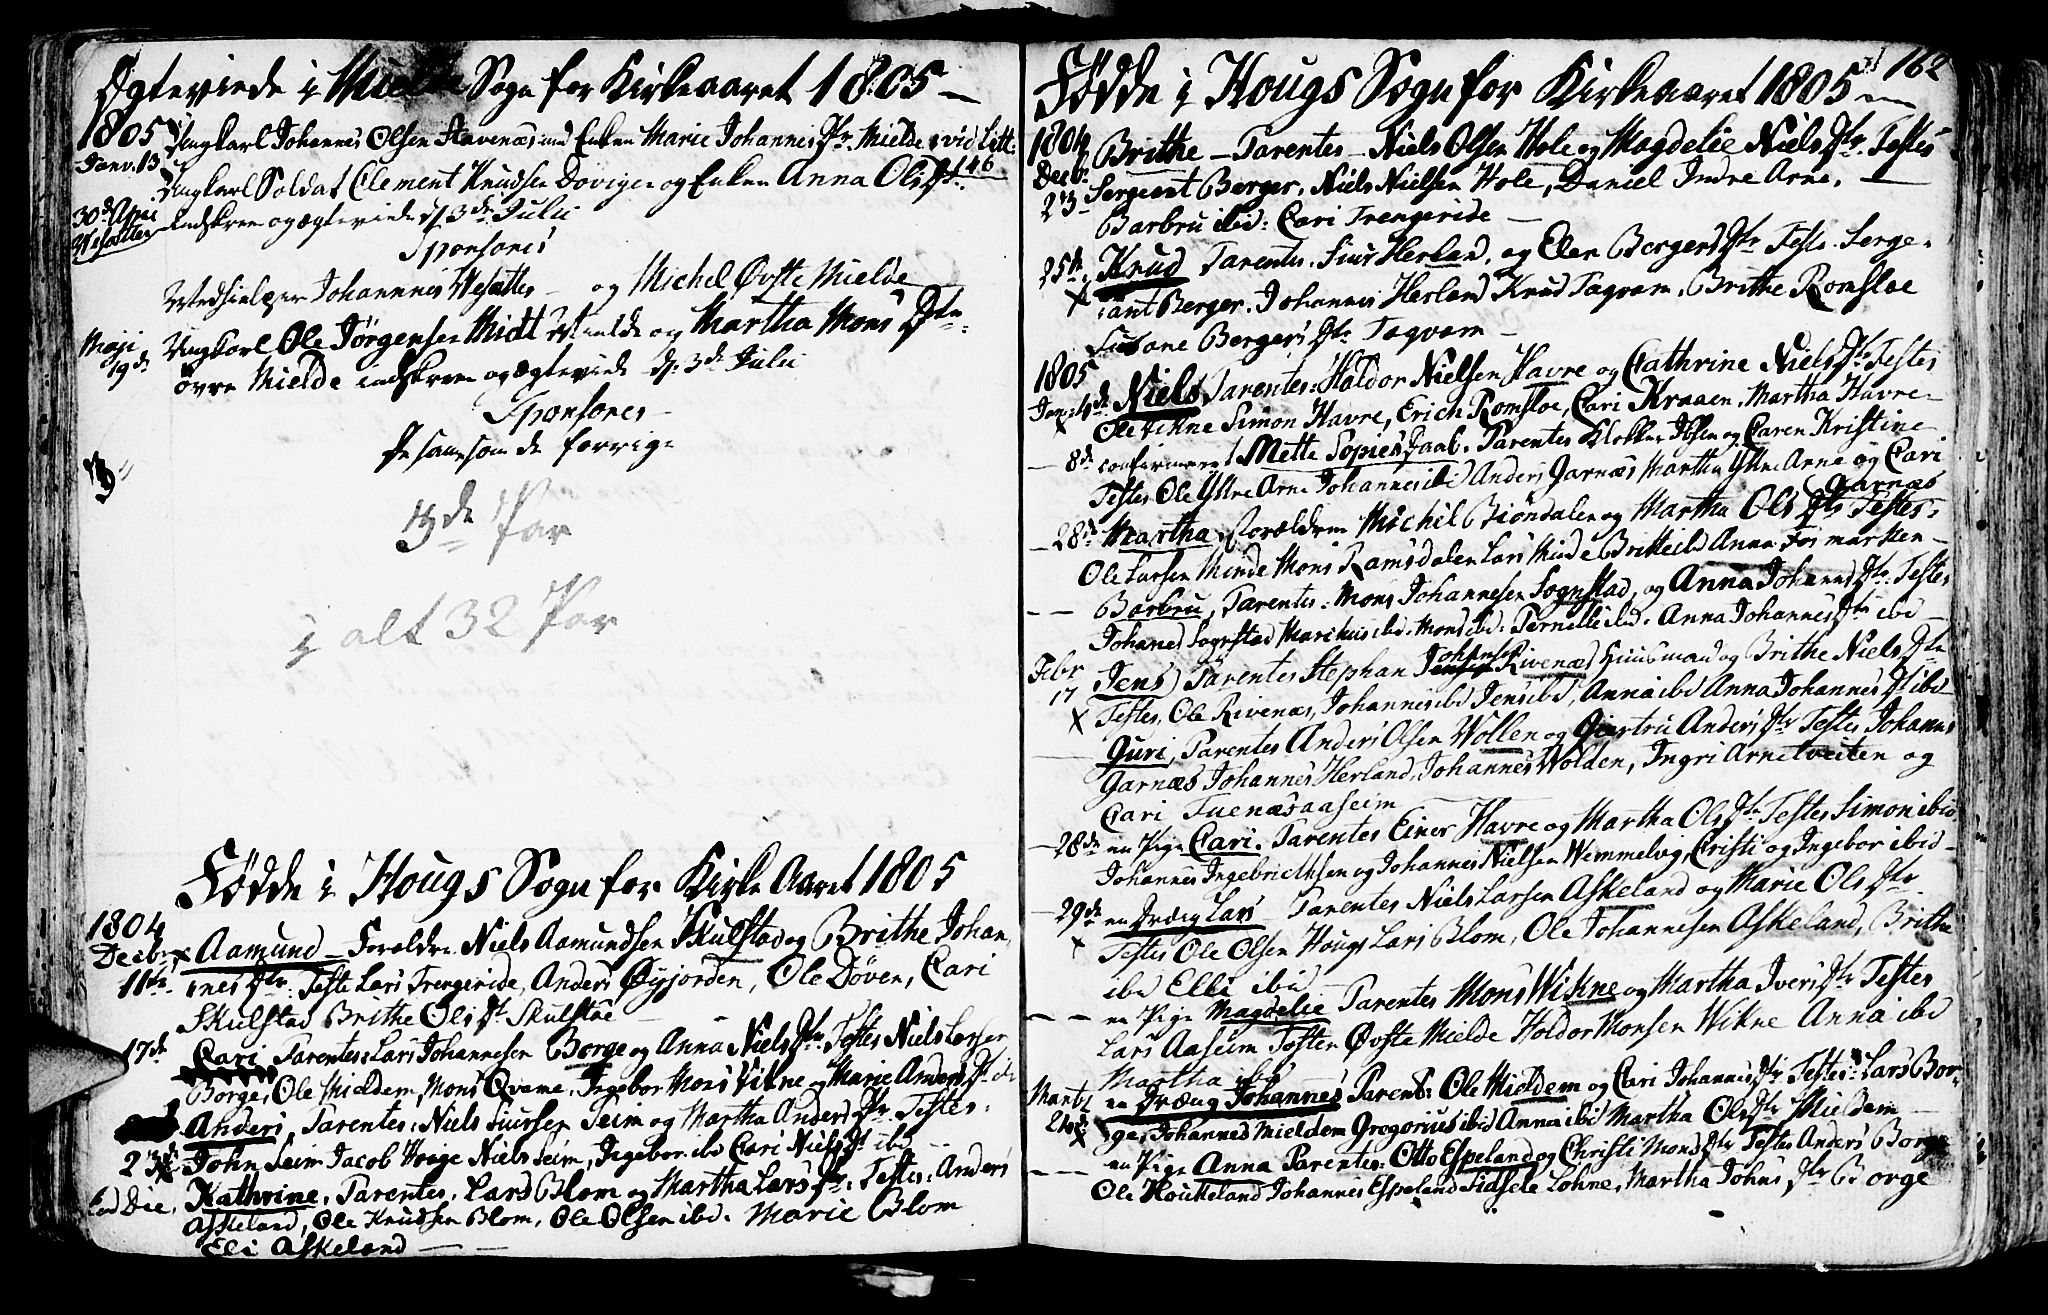 Ægteviede i Mielde Sogn for Kirkeaaret 1805 —
1805 Ungkarl Johannes Olsen Stavenæs med Enken Marie Johannis Dtr. Mielde vid Litt:
Janv. 13
Ungkarl Soldat Clement Knudsen Dovigen og Enken Anna Ols Dtr. 146
30de Apri
indskreven og ægteviede d. 3de Julii
Sponsores
Vedhielper Johannes Wesætter og Michel Øvste Mielde
Maji 19de Ungkarl Ole Jørgensen Midt Mielde og Martha Mons Dtr.
øvre Mielde indskreven og ægteviede d. 3de Julii
Sponsores
De samme som de forrige
3de Par
i alt 32 Par
Fødde i Hougs Sogn for Kirke Aaret 1805
1804
Decbr. Aamund — Forældre Niels Aamundsen Skulstad og Brithe Johan
11te nes Dtr: Teste Lars Trengeride, Anders Øyjorden, Ole Døven, Cari
Skulstad Brithe Ols Dt Skulstad
17de Cari Parentes: Lars Johannesen Borge og Anna Niels Dtr Testes Niels Larsen
Borge, Ole Mieldem, Mons Qvame, Ingebor Mons Vikne og Marie Anders Dt ib
Anders, Parentes: Niels Siursen Seim og Martha Anders Dtr. Testes:
23de John Seim Jacob Hoige Niels Seim, Ingebor ibd Cari Niels Dt ibd
eod Die, Kathrine, Parentes, Lars Blom og Martha Lars Dtr: Testes: Anders
Askeland, Ole Knudsen Blom, Ole Olsen ibd. Marie Blom
Eli Askeland
162
Fødde i Hougs Sogn for Kirkeaaret 1805
1804
Decb. Brithe — Parentes — Niels Olsen Hole og Magdelie Niels Dtr. Testes
23 Sergeant Berger, Niels Nielsen Hole, Daniel Indre Arne,
Barbru ibid: Cari Trengeride —
25de Knud Parentes. Siur Herland, og Elen Bergers Dtr Testes. Serge-
ant Berger. Johannes Herland Knud Tagvam, Brithe Romsloe
Susane Bergers Dtr Tagvam —
1805
Janv. 4de Niels Parentes: Haldor Nielsen Havre og Cathrine Niels Dtr Testes
Ole Vikne Simon Havre, Erich Romsloe, Cari Kraaen, Martha Havre
8de confirmeret Mette Sopies Daab. Parentes Klokker Ibsen og Caren Kristine
Testes Ole Ytre Arne Johannes ibd Anders Garnæs Martha Ytre Arne og Cari
Garnæs
28de Martha, Forældren Michil Biøndalen og Martha Ols Dtr Testes:
Ole Larsen Minde Mons Ramsdalen Lars Minde Brithe ibd Anna Formarken
Barbru, Parentes: Mons Johannesen Sognstad, og Anna Johannes Dtr. Testes
Johanes Sognstad Marthus ibd. Mons ibd: Pernille ibd. Anna Johannes Dtr ibd
Febr 17 Jens Parentes Stephan Johanes Rivenæs Huusmand og Brithe Niels Dtr
Testes, Ole Rivenæs, Johannes ibd Jens ibd, Anna ibd Anna Johannes Dt ibd
Guri, Parentes Anders Olsen Wollen og Giertru Anders Dtr Testes Johannes
Garnæs Johannes Herland, Johannes Wolden, Ingri Arnetveiten og
Cari Tuenæsaaseim
28de en Pige Cari. Parentes Einer Havre og Martha Ols Dtr Testes Simon ibid
Johannes Ingebricthsen og Johannes Nielsen Wemmelvg, Cristi og Ingebor ibid
29de en Dræng Lars Parentes Niels Larsen Askeland og Marie Ols Dtr
Testes Ole Olsen Hougs Lars Blom, Ole Johannesen Askeland, Brithe
ibd Elli ibid
en Pige Magdelie Parentes Mons Wikne og Martha Ivers Dtr Testes
Lars Aaseim Tosten Øvste Mielde Holdor Monsen Wikne Anna ibd
Martha ibd
Martz en Dræng Johannes Parent: Ole Mieldem og Cari Johannes Dtr Testes: Lars Bor-
ge, Johannes Mieldem Gregorius ibid Anna ibd Martha Ols Dtr Mieldem
en Pige Anna Parentes: Otto Espeland og Christi Mons Dtr Testes Anders Borge
Ole Houkeland Johannes Espeland Sidsele Lohne, Martha Johns Dtr Borge